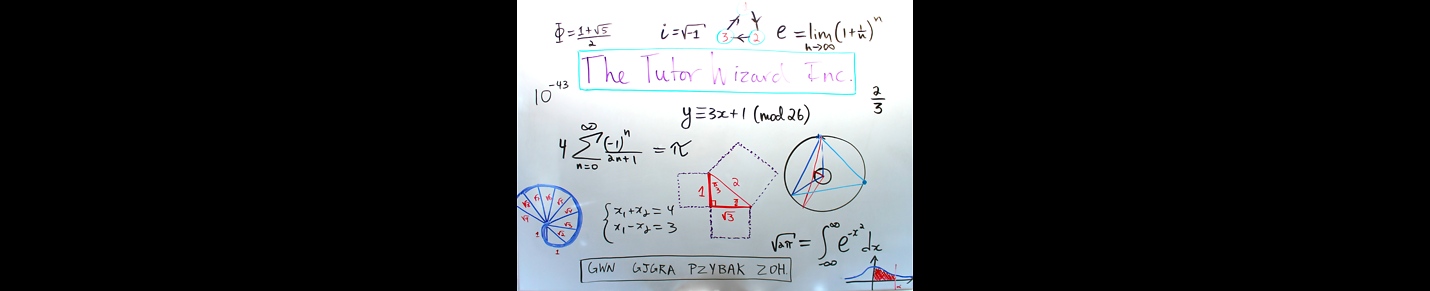 Φ = (1+√5)/2
i = √-1
3 ← 2
e = lim n→∞ (1+1/n)^n
The Tutor Wizard Inc.
10^-43
2/3
y ≡ 3x+1 (mod 26)
4 ∑ n=0 ∞ (-1)^n/(2n+1) = π
1 2 √3
x₁+x₂ = 4
x₁-x₂ = 3
√2π = ∫ -∞ ∞ e^-x² dx
GWN GJGRA PZYBAK ZOH.